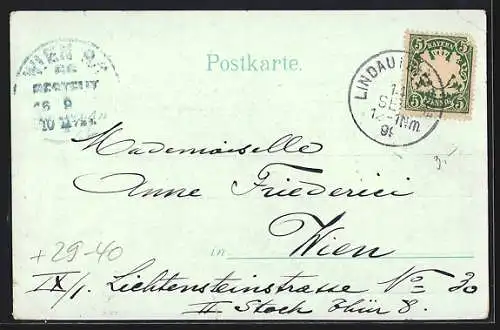 WIEN 9
BESTELLT
Postkarte.
LINDAU
14
SEP
12-1Nm.
5 BAYERN 5
5 PFENNIG 5
Mademoiselle
Anne Friederici
in Wien
+29-40
IX/1. Liechtensteinstrasse No 30
II Stock Thür 8.